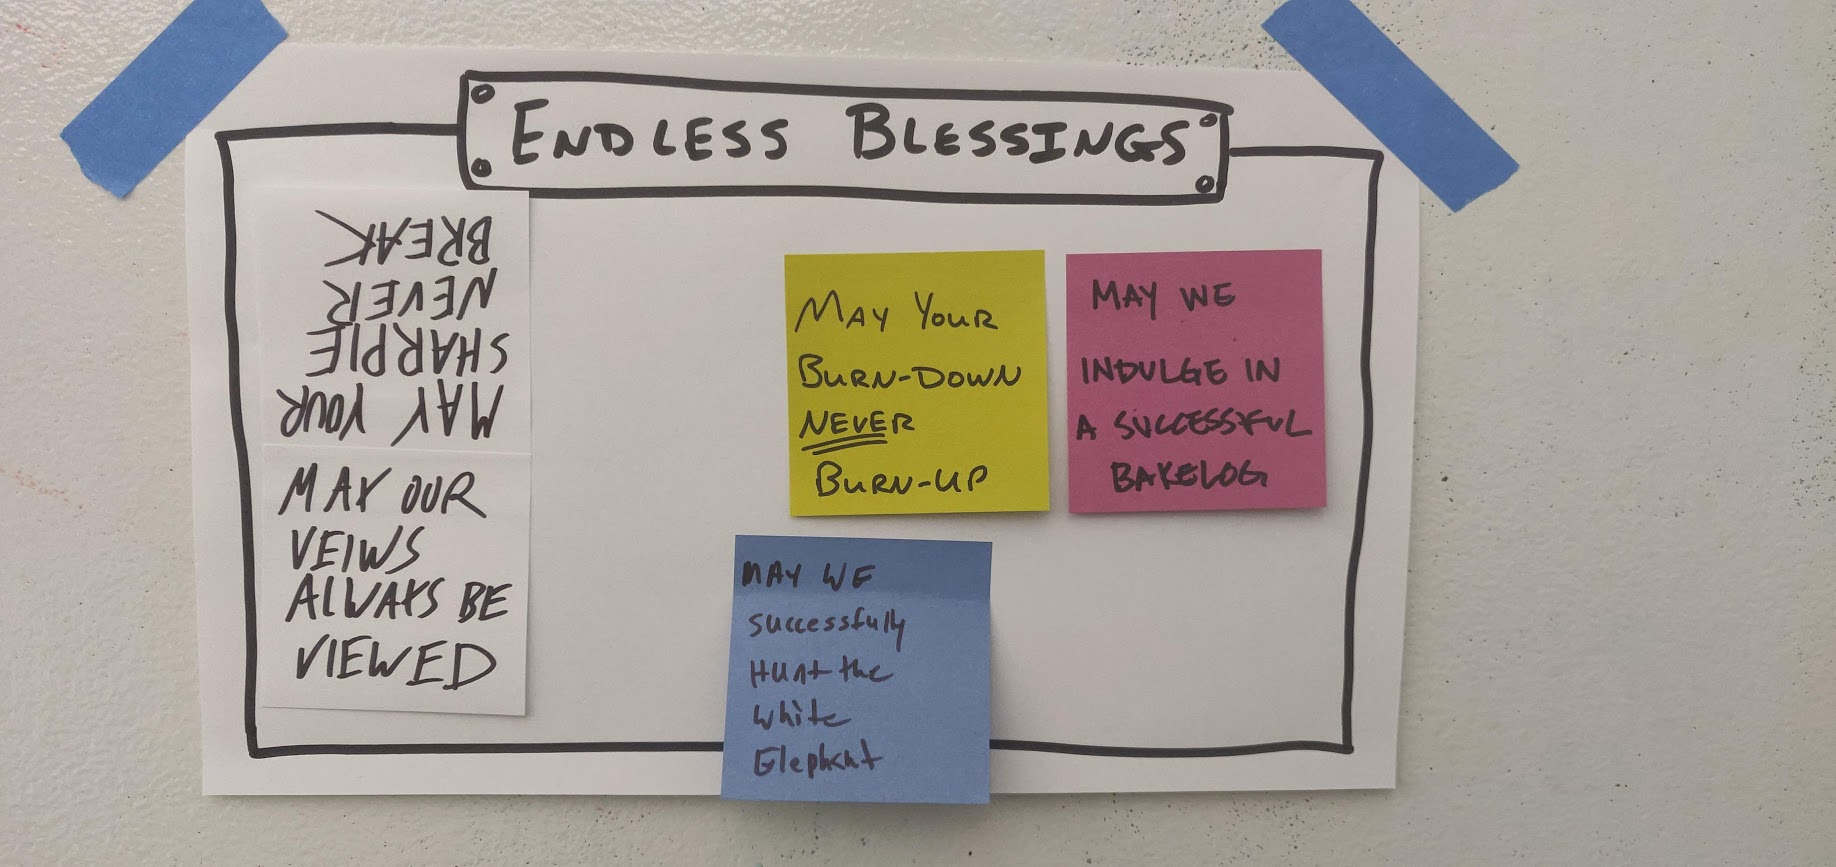 ENDLESS BLESSINGS
MAY YOUR
SHARPIE
NEVER
BREAK
MAY OUR
VEIWS
ALWAYS BE
VIEWED
MAY YOUR
BURN-DOWN
NEVER
BURN-UP
MAY WE
INDULGE IN
A SUCCESSFUL
BAKELOG
MAY WE
successfully
Hunt the
white
Elephant